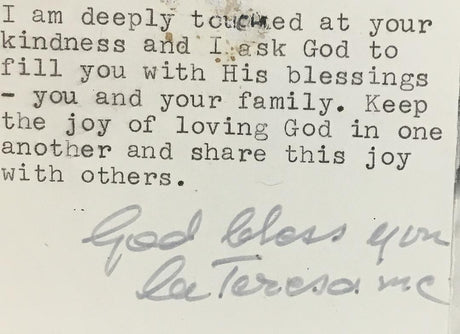 I am deeply touched at your
kindness and I ask God to
fill you with His blessings
- you and your family. Keep
the joy of loving God in one
another and share this joy
with others.
God bless you
lee Teresa mc